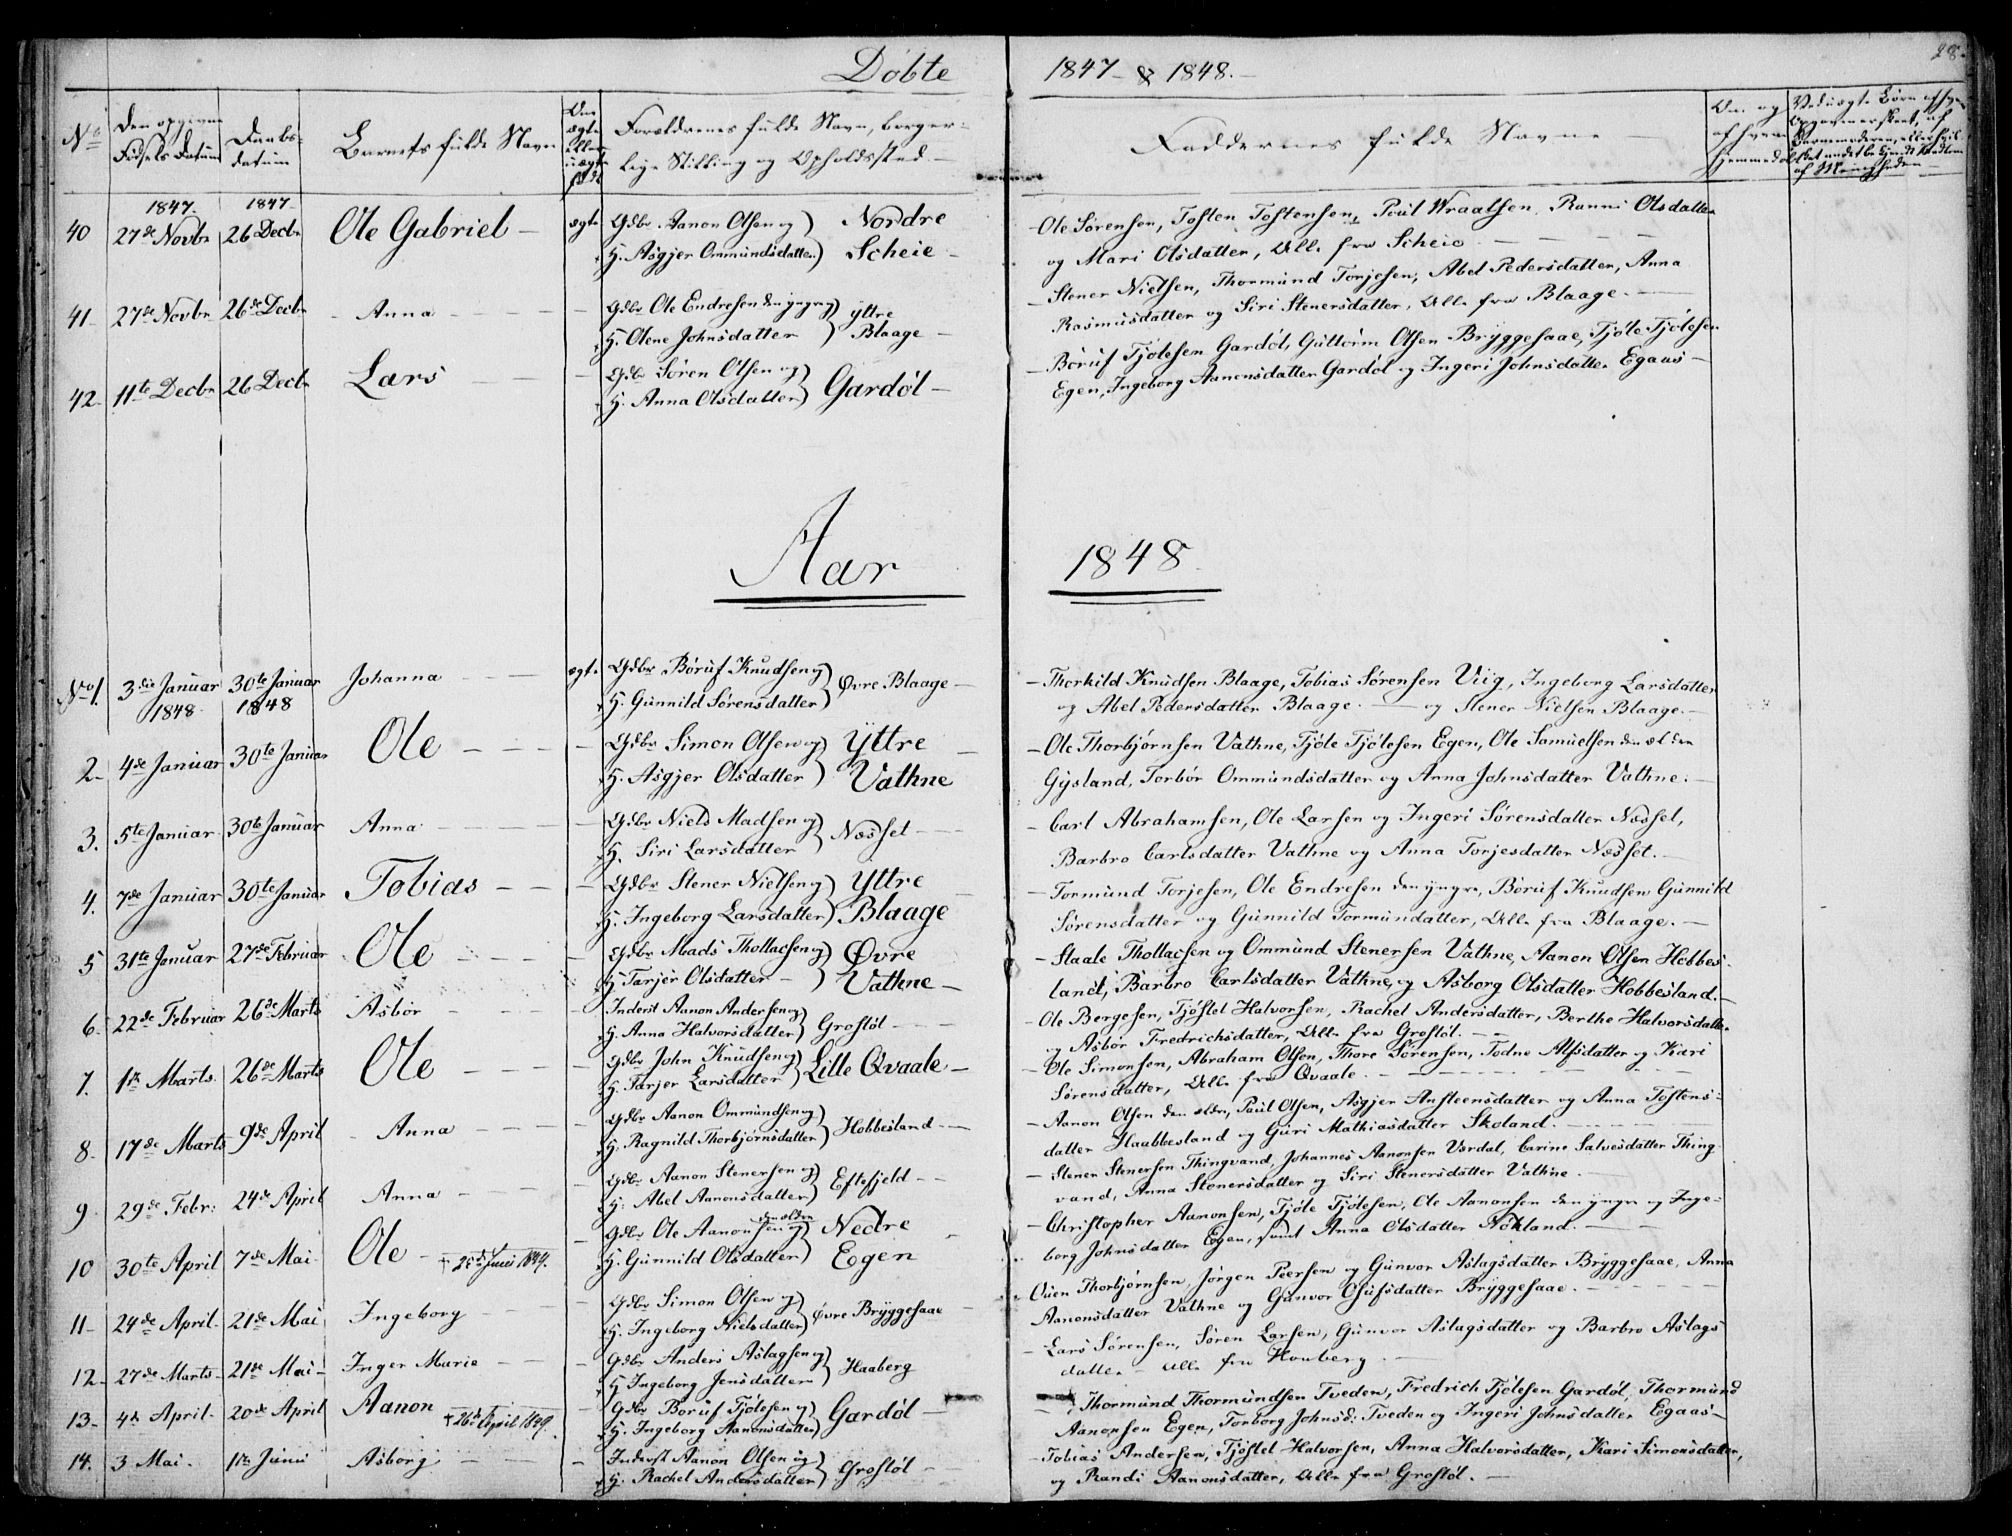 28.
Døbte 1847 & 1848.
No
Den opgivne Fødsels Datum
Daabs-datum
Barnets fulde Navn
Om ægte eller uægte født
Forældrenes fulde Navn, borger-
lige Stilling og Opholdssted
Faddernes fulde Navne
Om og af hvem hjemmedøbt
Ved uægte Børn
40 1847. 27de Novbr 1847 26 Decbr Ole Gabriel ægte Gdbr. Aanon Olsen og
H. Asgjer Ommundsdatter) Nordre Scheie
Ole Sørensen, Tosten Tostensen, Poul Wraalsen, Ranni Olsdatter
og Mari Olsdatter, Alle fra Scheie
41 27de Novbr 26de Decbr Anna Gdbr Ole Endresen den yngre og
H. Olene Johnsdatter) Yttre Blaage
Stener Nielsen, Thormund Torjesen, Abel Pedersdatter, Anna
Rasmusdatter og Siri Stenersdatter, Alle fra Blaage.
42 11te Decbr 26 Decbr Lars Gdbr Søren Olsen og
H. Anna Olsdatter) Gardøl
Børuf Tjølesen Gardøl, Guttorm Olsen Bryggesaae, Tjøle Tjølesen
Egen, Ingeborg Aanonsdatter Gardøl og Ingeri Johnsdatter Egaas
Aar 1848.
No 1. 3die Januar 1848 30te Januar 1848 Johanna ægte Gdbr Børuf Knudsen og
H. Gunnild Sørensdatter) Øvre Blaage
Thorkild Knudsen Blaage, Tobias Sørensen Viig, Ingeborg Larsdatter
og Abel Pedersdatter Blaage. og Stener Nielsen Blaage.
2 4de Januar 30te Januar Ole Gdbr Simon Olsen og
H. Asgjer Olsdatter) Yttre Vathne
Ole Thorbjørnsen Vathne, Tjøle Tjølesen Egen, Ole Samuelsen den ælden
Gysland, Torbør Ommundsdatter og Anna Johnsdatter Vathne.
3. 5te Januar 30te Januar Anna Gdbr Niels Madsen og
H. Siri Larsdatter) Nædset
Carl Abrahamsen, Ole Larsen og Ingeri Sørensdatter Nædset,
Barbro Carlsdatter Vathne og Anna Torjesdatter Nædset.
4. 7de Januar 30te Januar Tobias Gdbr Stener Nielsen og
H. Ingeborg Larsdatter) Yttre Blaage
Tormund Torjesen, Ole Endresen den yngre, Børuf Knudsen Gunnild
Sørensdatter og Gunnild Tormundatter, Alle fra Blaage.
5 31te Januar 27de Februar Ole Gdbr Mads Thollacsen og
H Tarjer Olsdatter) Øvre Vathne
Staale Thollacsen og Ommund Stenersen Vathne, Aanon Olsen Hobbes-
land, Barbro Carlsdatter Vathne, og Asborg Olsdatter Hobbesland.
6. 22de Februar 26de Marts Asbør Inderst Aanon Andersen og
H. Anna Halvorsdatter) Grostøl
Ole Børgesen, Tjøstel Halvorsen, Rachel Andersdatter, Berthe Halvorsdatter
og Asbør Fredrichsdatter, Alle fra Grostøl.
7. 1te Marts. 26de Marts Ole Gdbr John Knudsen og
H. Tarjer Larsdatter) Lille Qvaale
Ole Simonsen, Abraham Olsen, Thore Sørensen, Todne Alfsdatter og Kari
Sørensdatter, Alle fra Qvaale.
8. 17de Marts 9de April Anna Gdbr Aanon Ommundsen og
H. Ragnild Thorbjørnsdatter) Hobbesland
Aanon Olsen den ældre, Paul Olsen, Asgjer Ansteensdatter og Anna Tostens-
datter Haabbesland og Guri Mathiasdatter Skoland.
9 29de Febr: 24de April Anna Gdbr Aanon Stenersen og
H: Abel Aanonsdatter) Eftefjeld
Stener Stenersen Thingvand, Johannes Aanonsen Urdal, Carine Salvesdatter Thing-
vand, Anna Stenersdatter og Siri Stenersdatter Vathne.
10 30te April 7de Mai. Ole † 25de Juni 1849. Gdbr Ole Aanonsen den ælden og
H. Gunnild Olsdatter) Nedre Egen
Christopher Aanonsen, Tjøle Tjølesen, Ole Aanonsen den yngre og Inge-
borg Johnsdatter Egen, samt Anna Olsdatter Aokland.
11 24de April. 21de Mai Ingeborg Gdbr Simon Olsen og
H. Ingeborg Nielsdatter) Øvre Bryggesaae
Ouen Thorbjørnsen, Jørgen Peersen og Gunvor Aslagsdatter Bryggesaae, Anna
Aanonsdatter Vathne og Gunvor Osufsdatter Bryggesaae.
12 27de Marts 21de Mai Inger Marie Gdbr Anders Aslagsen og
H Ingeborg Jensdatter) Haaberg
Lars Sørensen, Søren Larsen, Gunvor Aslagsdatter og Barbro Aslags
datter Alle fra Houberg.
13 4de April. 20de April Aanon † 26de April 1849. Gdbr Børuf Tjølesen og
H. Ingeborg Aanonsdatter) Gardøl
Thormund Thormundsen Tveden, Fredrich Tjølesen Gardøl, Thormund
Aanonsen Egen, Torborg Johnsd: Tveden og Ingeri Johnsdatter Egaas
14. 3 Mai. 1te Juni Asborg Inderst Aanon Olsen og
H. Rachel Andersdatter) Grostøl
Tobias Andersen, Tjøstel Halvorsen, Anna Halvorsdatter, Kari Simonsdatter,
og Randi Aanonsdatter, Alle fra Grostøl.